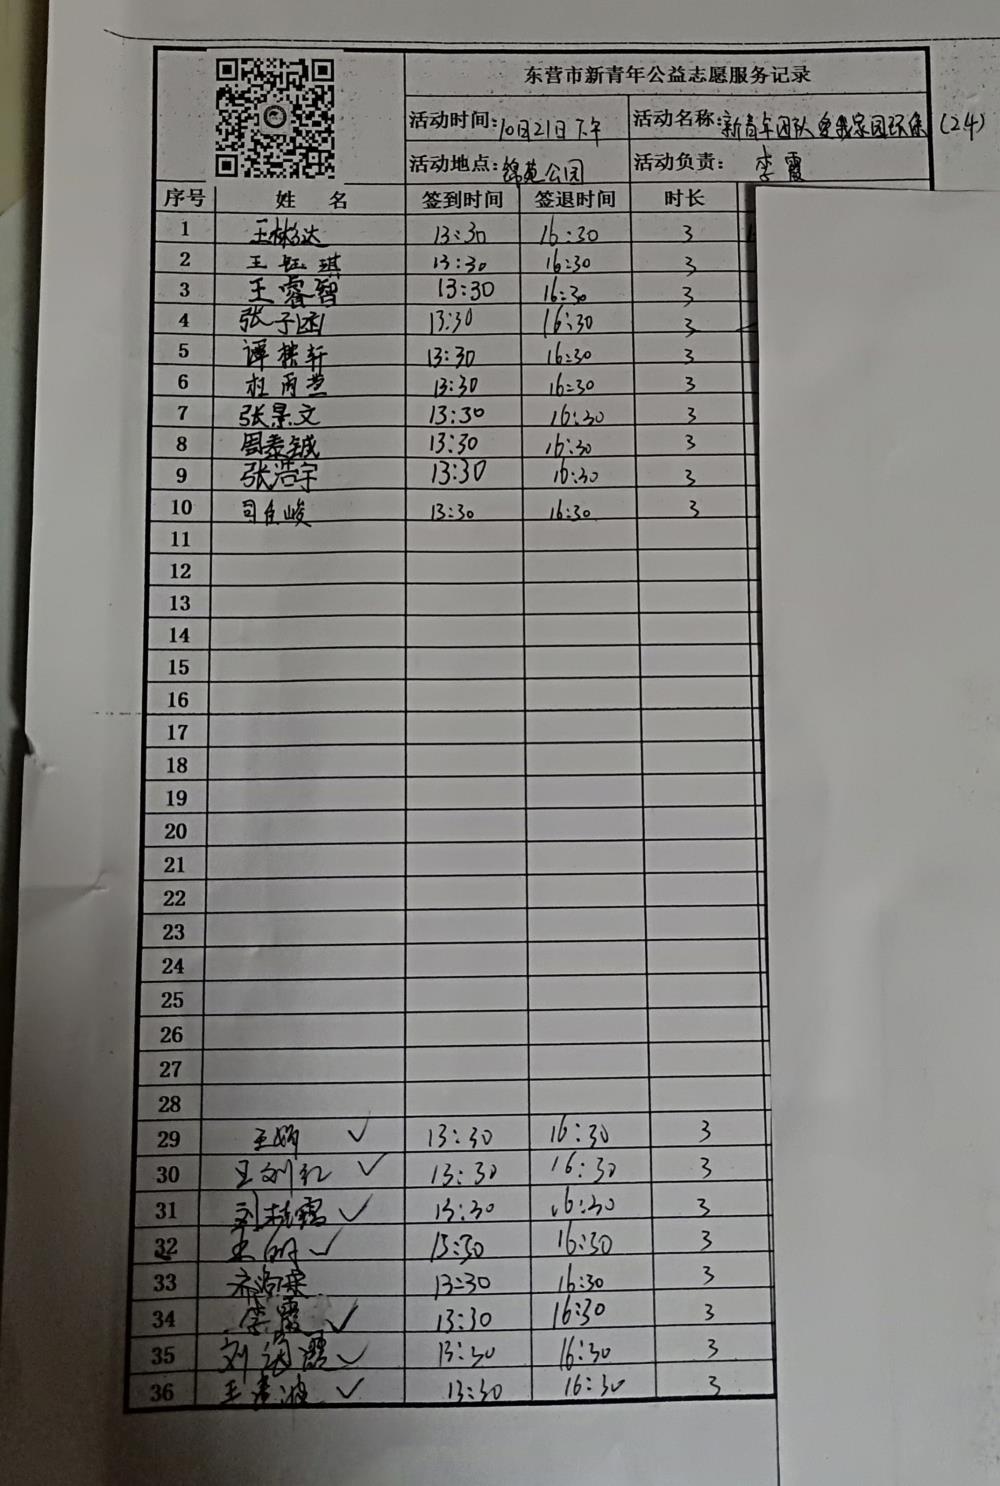 东营市新青年公益志愿服务记录
活动时间:10月21日下午 活动名称:新青年团队爱我家园环保(24)
活动地点:锦苑公园 活动负责: 李霞
序号 姓 名 签到时间 签退时间 时长
1 13:30 16:30 3
2 王钰琪 13:30 16:30 3
3 王睿智 13:30 16:30 3
4 张子涵 13:30 16:30 3
5 谭 轩 13:30 16:30 3
6 杜雨 13:30 16:30 3
7 张景文 13:30 16:30 3
8 周泰铖 13:30 16:30 3
9 张浩宇 13:30 16:30 3
10 司 峻 13:30 16:30 3
11
12
13
14
15
16
17
18
19
20
21
22
23
24
25
26
27
28
29 王娇 ✓ 13:30 16:30 3
30 王刘红 ✓ 13:30 16:30 3
31 刘 霞 ✓ 13:30 16:30 3
32 ✓ 13:30 16:30 3
33 13:30 16:30 3
34 李霞 ✓ 13:30 16:30 3
35 刘 霞 ✓ 13:30 16:30 3
36 王 波 ✓ 13:30 16:30 3